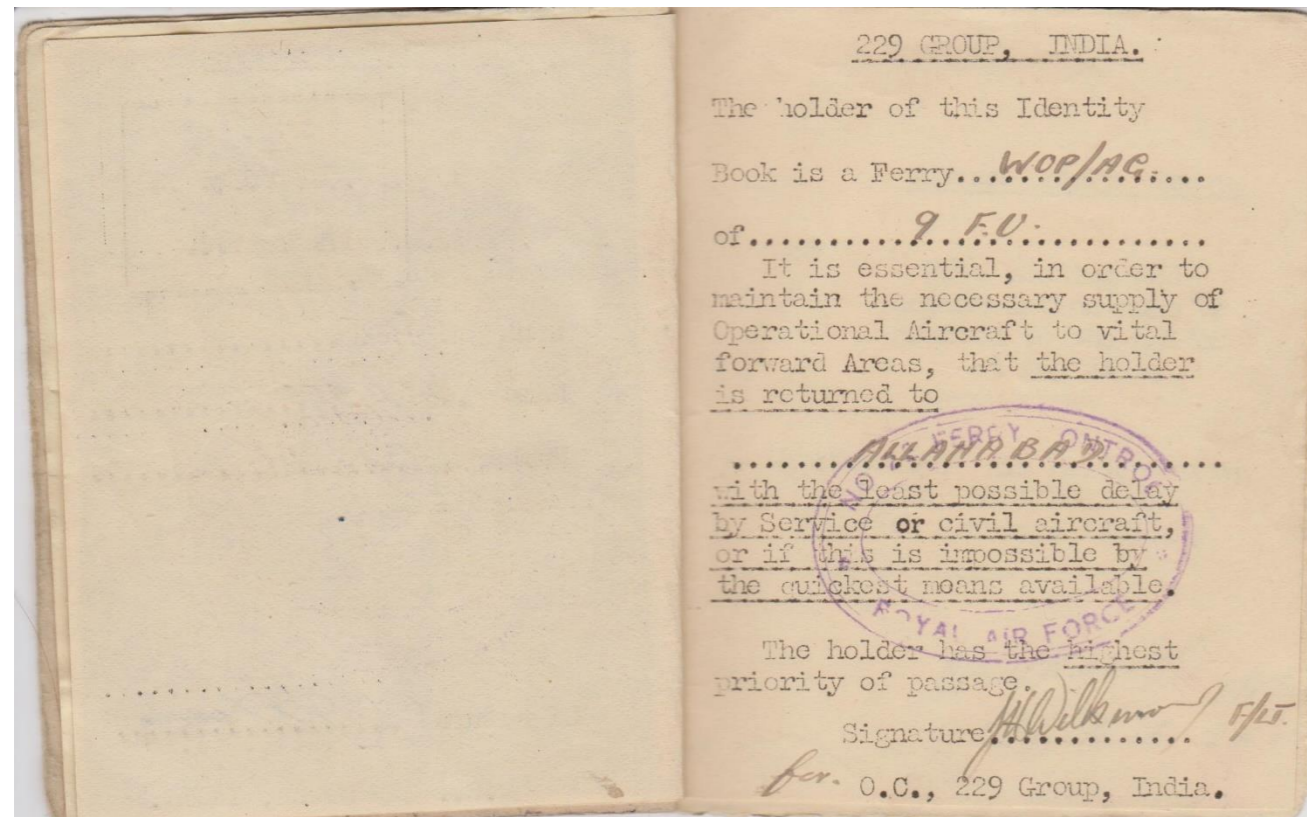 229 GROUP, INDIA.
The holder of this Identity
Book is a Ferry...WOP/AG.......
of..........9 F.U.................
It is essential, in order to
maintain the necessary supply of
Operational Aircraft to vital
forward Areas, that the holder
is returned to
..........ALLAHABAD..........
with the least possible delay
by Service or civil aircraft,
or if this is impossible by
the quickest means available.
The holder has the highest
priority of passage.
Signature.............. F/LT.
for. O.C., 229 Group, India.
NO FERRY ONTROL
ROYAL AIR FORCE